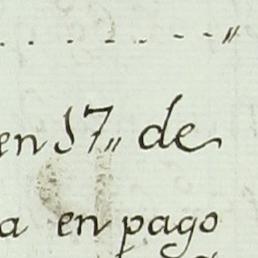 . . . . . . - - - "
en 17,, de
a en pago